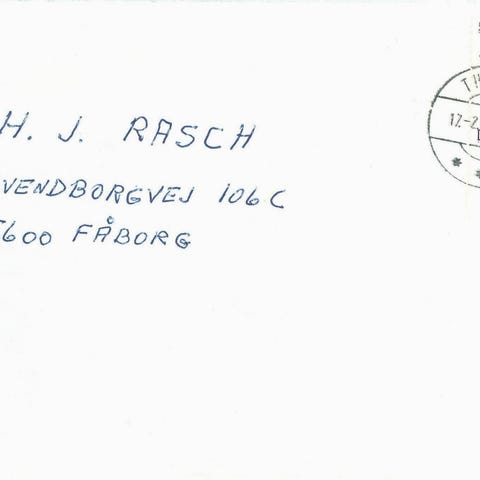 H. J. RASCH
VENDBORGVEJ 106 C
600 FÅBORG
17.-2